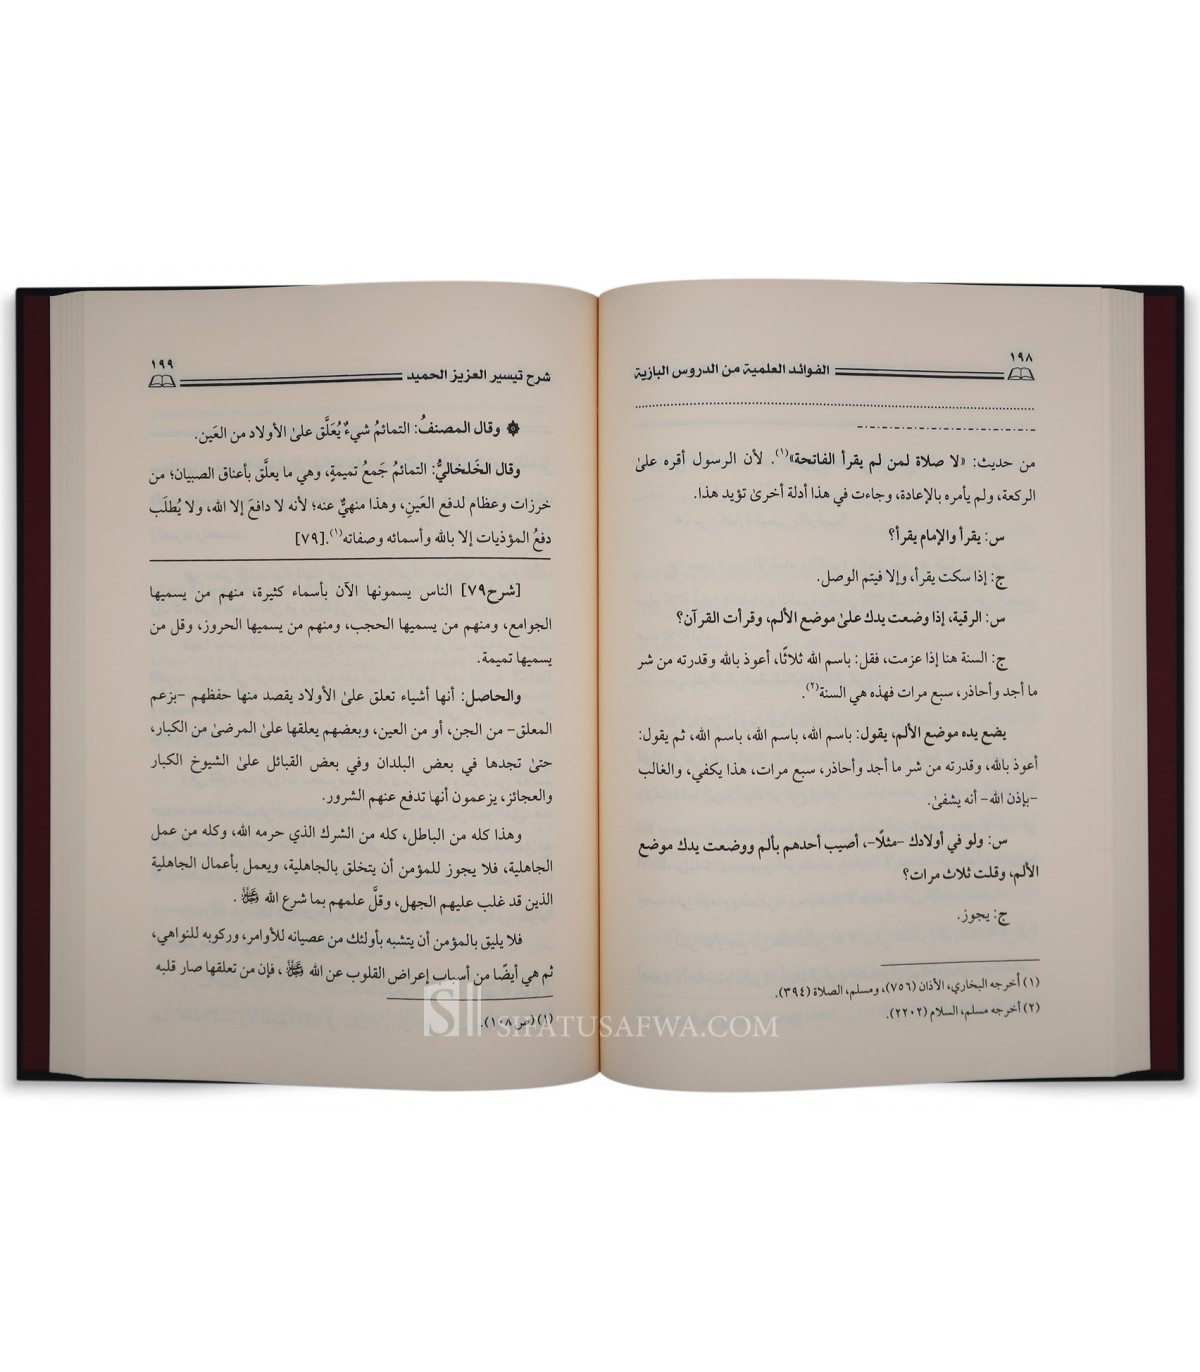 ١٩٨
الفوائد العلمية من الدروس البازية
من حديث: «لا صلاة لمن لم يقرأ الفاتحة»(١). لأن الرسول أقره علىٰ
الركعة، ولم يأمره بالإعادة، وجاءت في هذا أدلة أخرىٰ تؤيد هذا.
س: يقرأ والإمام يقرأ؟
ج: إذا سكت يقرأ، وإلا فيتم الوصل.
س: الرقية، إذا وضعت يدك علىٰ موضع الألم، وقرأت القرآن؟
ج: السنة هنا إذا عزمت، فقل: باسم الله ثلاثًا، أعوذ بالله وقدرته من شر
ما أجد وأحاذر، سبع مرات فهذه هي السنة(٢).
يضع يده موضع الألم، يقول: باسم الله، باسم الله، باسم الله، ثم يقول:
أعوذ بالله، وقدرته من شر ما أجد وأحاذر، سبع مرات، هذا يكفي، والغالب
-بإذن الله- أنه يشفىٰ.
س: ولو في أولادك -مثلًا-، أصيب أحدهم بألم ووضعت يدك موضع
الألم، وقلت ثلاث مرات؟
ج: يجوز.
(١) أخرجه البخاري، الأذان (٧٥٦)، ومسلم، الصلاة (٣٩٤).
(٢) أخرجه مسلم، السلام (٢٢٠٢).
١٩٩
شرح تيسير العزيز الحميد
وقال المصنفُ: التمائمُ شيءٌ يُعَلَّق علىٰ الأولاد من العَين.
وقال الخَلخاليُّ: التمائمُ جَمعُ تميمةٍ، وهي ما يعلَّق بأعناق الصبيان؛ من
خرزات وعظام لدفع العَينِ، وهذا منهيٌّ عنه؛ لأنه لا دافعَ إلا الله، ولا يُطلَب
دفعُ المؤذيات إلا بالله وأسمائه وصفاته(١).[٧٩]
[شرح٧٩] الناس يسمونها الآن بأسماء كثيرة، منهم من يسميها
الجوامع، ومنهم من يسميها الحجب، ومنهم من يسميها الحروز، وقل من
يسميها تميمة.
والحاصل: أنها أشياء تعلق علىٰ الأولاد يقصد منها حفظهم -بزعم
المعلق- من الجن، أو من العين، وبعضهم يعلقها علىٰ المرضىٰ من الكبار،
حتىٰ تجدها في بعض البلدان وفي بعض القبائل علىٰ الشيوخ الكبار
والعجائز، يزعمون أنها تدفع عنهم الشرور.
وهذا كله من الباطل، كله من الشرك الذي حرمه الله، وكله من عمل
الجاهلية، فلا يجوز للمؤمن أن يتخلق بالجاهلية، ويعمل بأعمال الجاهلية
الذين قد غلب عليهم الجهل، وقلَّ علمهم بما شرع الله ﷻ.
فلا يليق بالمؤمن أن يتشبه بأولئك من عصيانه للأوامر، وركوبه للنواهي،
ثم هي أيضًا من أسباب إعراض القلوب عن الله ﷻ، فإن من تعلقها صار قلبه
(١) (ص ١٠٨).
SIFATUSAFWA.COM